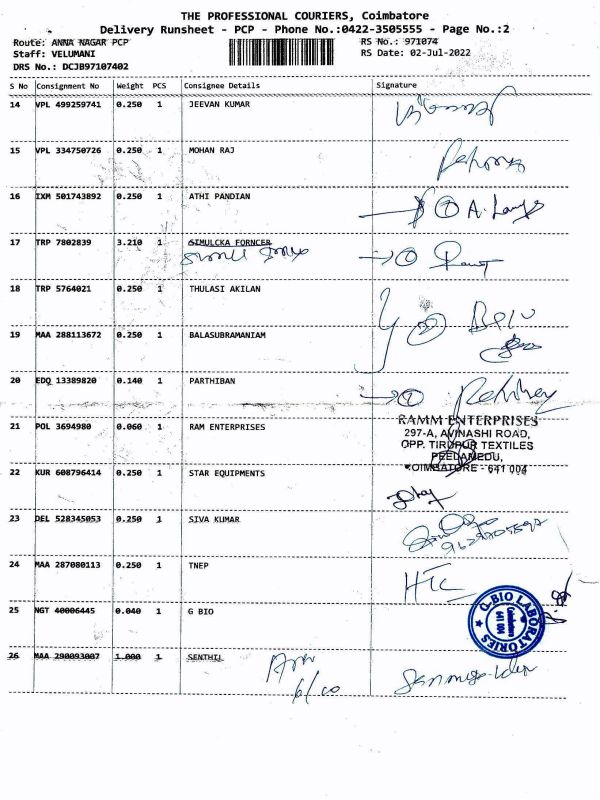 THE PROFESSIONAL COURIERS, Coimbatore
Delivery Runsheet - PCP - Phone No.:0422-3505555 - Page No.:2
Route: ANNA NAGAR PCP
RS No.: 971074
Staff: VELUMANI
RS Date: 02-Jul-2022
DRS No.: DCJB97107402
S No Consignment No Weight PCS Consignee Details Signature
14 VPL 499259741 0.250 1 JEEVAN KUMAR
15 VPL 334750726 0.250 1 MOHAN RAJ
16 IXM 501743892 0.250 1 ATHI PANDIAN
17 TRP 7802839 3.210 1 SIMULCKA FORNCER
18 TRP 5764021 0.250 1 THULASI AKILAN
19 MAA 288113672 0.250 1 BALASUBRAMANIAM
20 EDQ 13389820 0.140 1 PARTHIBAN
21 POL 3694980 0.060 1 RAM ENTERPRISES
RAMM ENTERPRISES
297-A, AVINASHI ROAD,
OPP. TIRUPUR TEXTILES
PEELAMEDU,
COIMBATORE - 641 004
22 KUR 608796414 0.250 1 STAR EQUIPMENTS
23 DEL 528345053 0.250 1 SIVA KUMAR
24 MAA 287080113 0.250 1 TNEP HTC
25 NGT 40006445 0.040 1 G BIO
G-BIO LABORATORIES
Coimbatore
641 004
26 MAA 290093007 1.000 1 SENTHIL